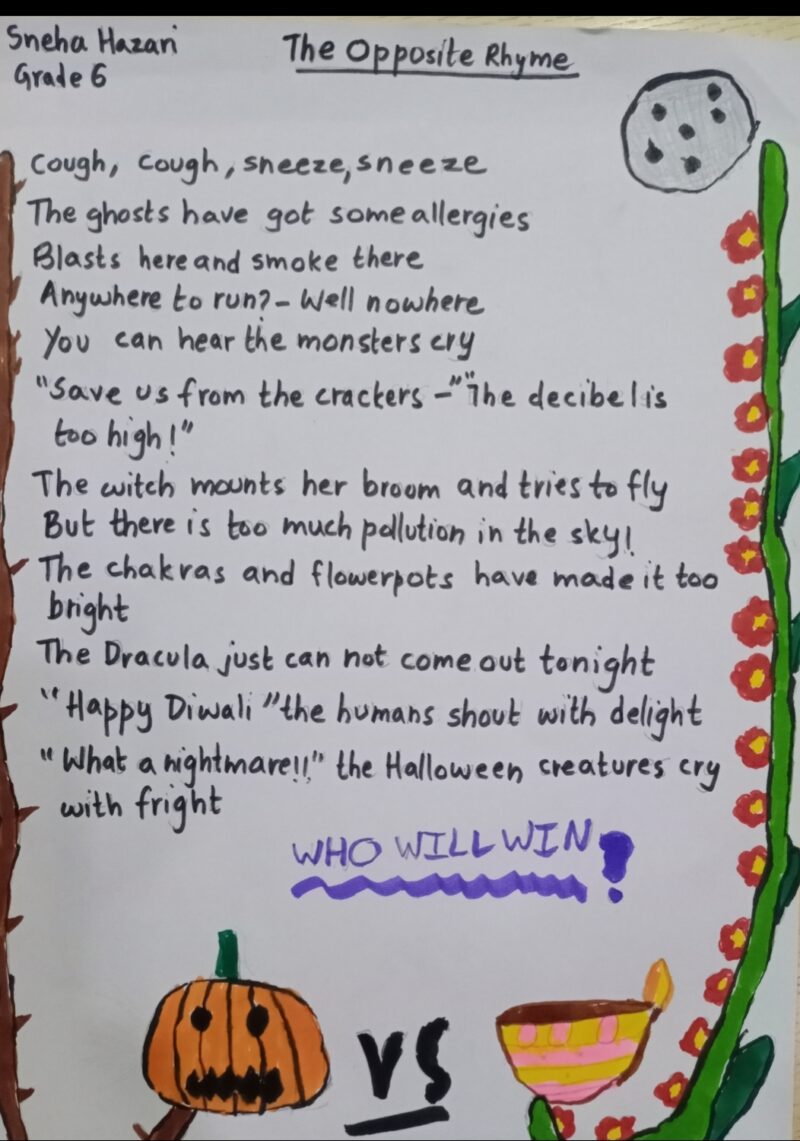 Sneha Hazari
Grade 6
The Opposite Rhyme
Cough, cough, sneeze, sneeze
The ghosts have got some allergies
Blasts here and smoke there
Anywhere to run? - Well nowhere
You can hear the monsters cry
"Save us from the crackers -" "The decibel is
too high!"
The witch mounts her broom and tries to fly
But there is too much pollution in the sky!
The chakras and flowerpots have made it too
bright
The Dracula just can not come out tonight
"Happy Diwali" the humans shout with delight
"What a nightmare!!" the Halloween creatures cry
with fright
WHO WILL WIN?
VS